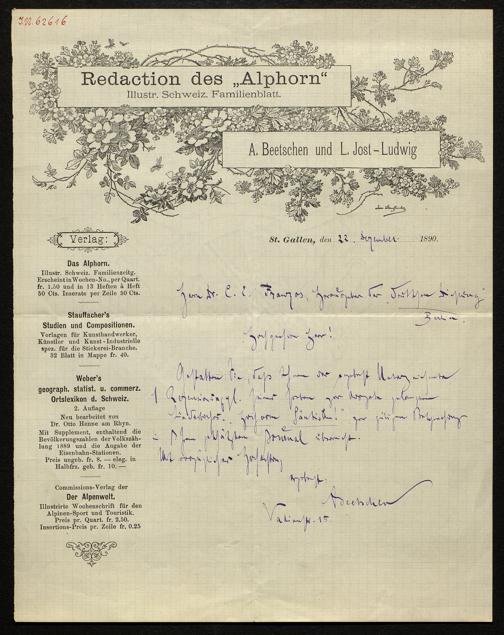 I.N. 62616
Redaction des „Alphorn“
Illustr. Schweiz. Familienblatt.
A. Beetschen und L. Jost-Ludwig
Verlag:
St. Gallen, den 22. Dezember 1890.
Das Alphorn.
Illustr. Schweiz. Familienzeitg.
Erscheint in Wochen-No., per Quart.
fr. 1,50 und in 13 Heften à Heft
50 Cts. Inserate per Zeile 50 Cts.
Stauffacher's
Studien und Compositionen.
Vorlagen für Kunsthandwerker,
Künstler und Kunst-Industrielle
spez. für die Stickerei-Branche.
32 Blatt in Mappe fr. 40.
Weber's
geograph. statist. u. commerz.
Ortslexikon d. Schweiz.
2. Auflage
Neu bearbeitet von
Dr. Otto Henne am Rhyn.
Mit Supplement, enthaltend die
Bevölkerungszahlen der Volkszäh-
lung 1889 und die Angabe der
Eisenbahn-Stationen.
Preis ungeb. fr. 8. — eleg. in
Halbfrz. geb. fr. 10. —
Commissions-Verlag der
Der Alpenwelt.
Illustrirte Wochenschrift für den
Alpinen-Sport und Touristik.
Preis pr. Quart. fr. 2,50.
Insertions-Preis pr. Zeile fr. 0.25
Herrn Dr. C. E. Franzos, Herausgeber der Deutschen Dichtung
Berlin
Hochgeehrter Herr!
Gestatten Sie, daß Ihnen der ergebenst Unterzeichnete
1 Rezensionsexpl. seiner
in Ihrem geschätzten Journal
Mit vorzüglicher Hochachtung
ergebenst
A Beetschen